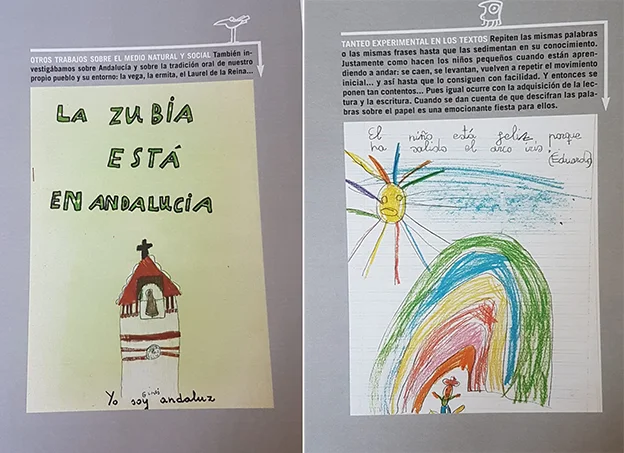 OTROS TRABAJOS SOBRE EL MEDIO NATURAL Y SOCIAL También in-
vestigábamos sobre Andalucía y sobre la tradición oral de nuestro
propio pueblo y su entorno: la vega, la ermita, el Laurel de la Reina...
LA ZUBIA
ESTÁ
EN ANDALUCIA
Yo soy andaluz
TANTEO EXPERIMENTAL EN LOS TEXTOS Repiten las mismas palabras
o las mismas frases hasta que las sedimentan en su conocimiento.
Justamente como hacen los niños pequeños cuando están apren-
diendo a andar: se caen, se levantan, vuelven a repetir el movimiento
inicial... y así hasta que lo consiguen con facilidad. Y entonces se
ponen tan contentos... Pues igual ocurre con la adquisición de la lec-
tura y la escritura. Cuando se dan cuenta de que descifran las pala-
bras sobre el papel es una emocionante fiesta para ellos.
El niño está feliz porque
ha salido el arco iris.
(Eduardo)